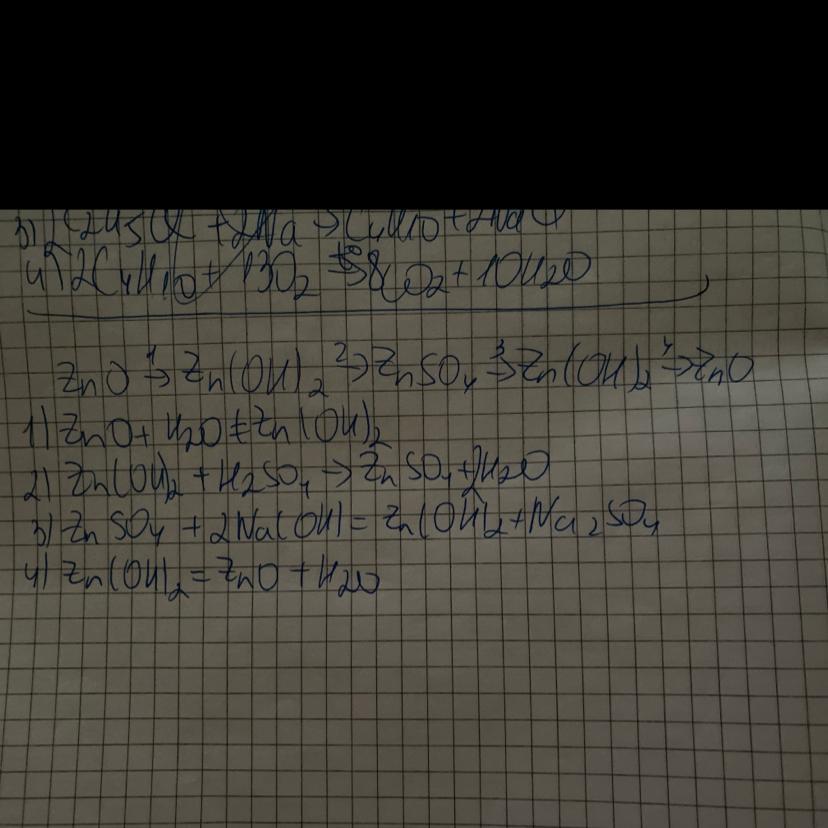 3) 2C2H5Cl + 2Na → C4H10 + 2NaCl
4) 2C4H10 + 13O2 → 8CO2 + 10H2O
ZnO →¹ Zn(OH)2 →² ZnSO4 →³ Zn(OH)2 →⁴ ZnO
1) ZnO + H2O ≠ Zn(OH)2
2) Zn(OH)2 + H2SO4 → ZnSO4 + 2H2O
3) ZnSO4 + 2Na(OH) = Zn(OH)2 + Na2SO4
4) Zn(OH)2 = ZnO + H2O